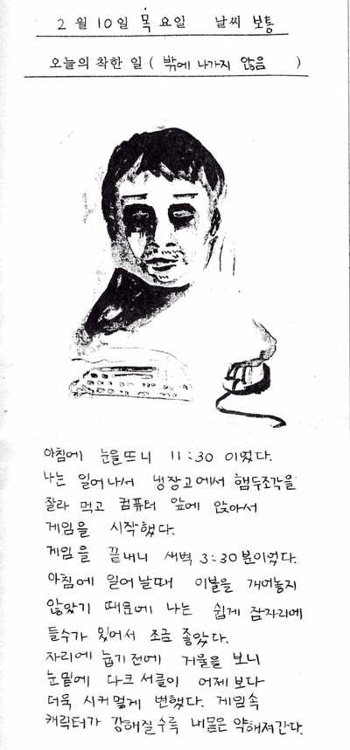 2월 10일 목요일 날씨 보통
오늘의 착한 일 ( 밖에 나가지 않음 )
아침에 눈을 뜨니 11:30 이었다.
나는 일어나서 냉장고에서 햄두조각을
잘라 먹고 컴퓨터 앞에 앉아서
게임을 시작했다.
게임을 끝내니 새벽 3:30분이었다.
아침에 일어날때 이불을 개어놓지
않았기 때문에 나는 쉽게 잠자리에
들수가 있어서 조금 좋았다.
자리에 눕기전에 거울을 보니
눈밑에 다크서클이 어제보다
더욱 시커멓게 변했다. 게임속
캐릭터가 강해질수록 내몸은 약해져간다.